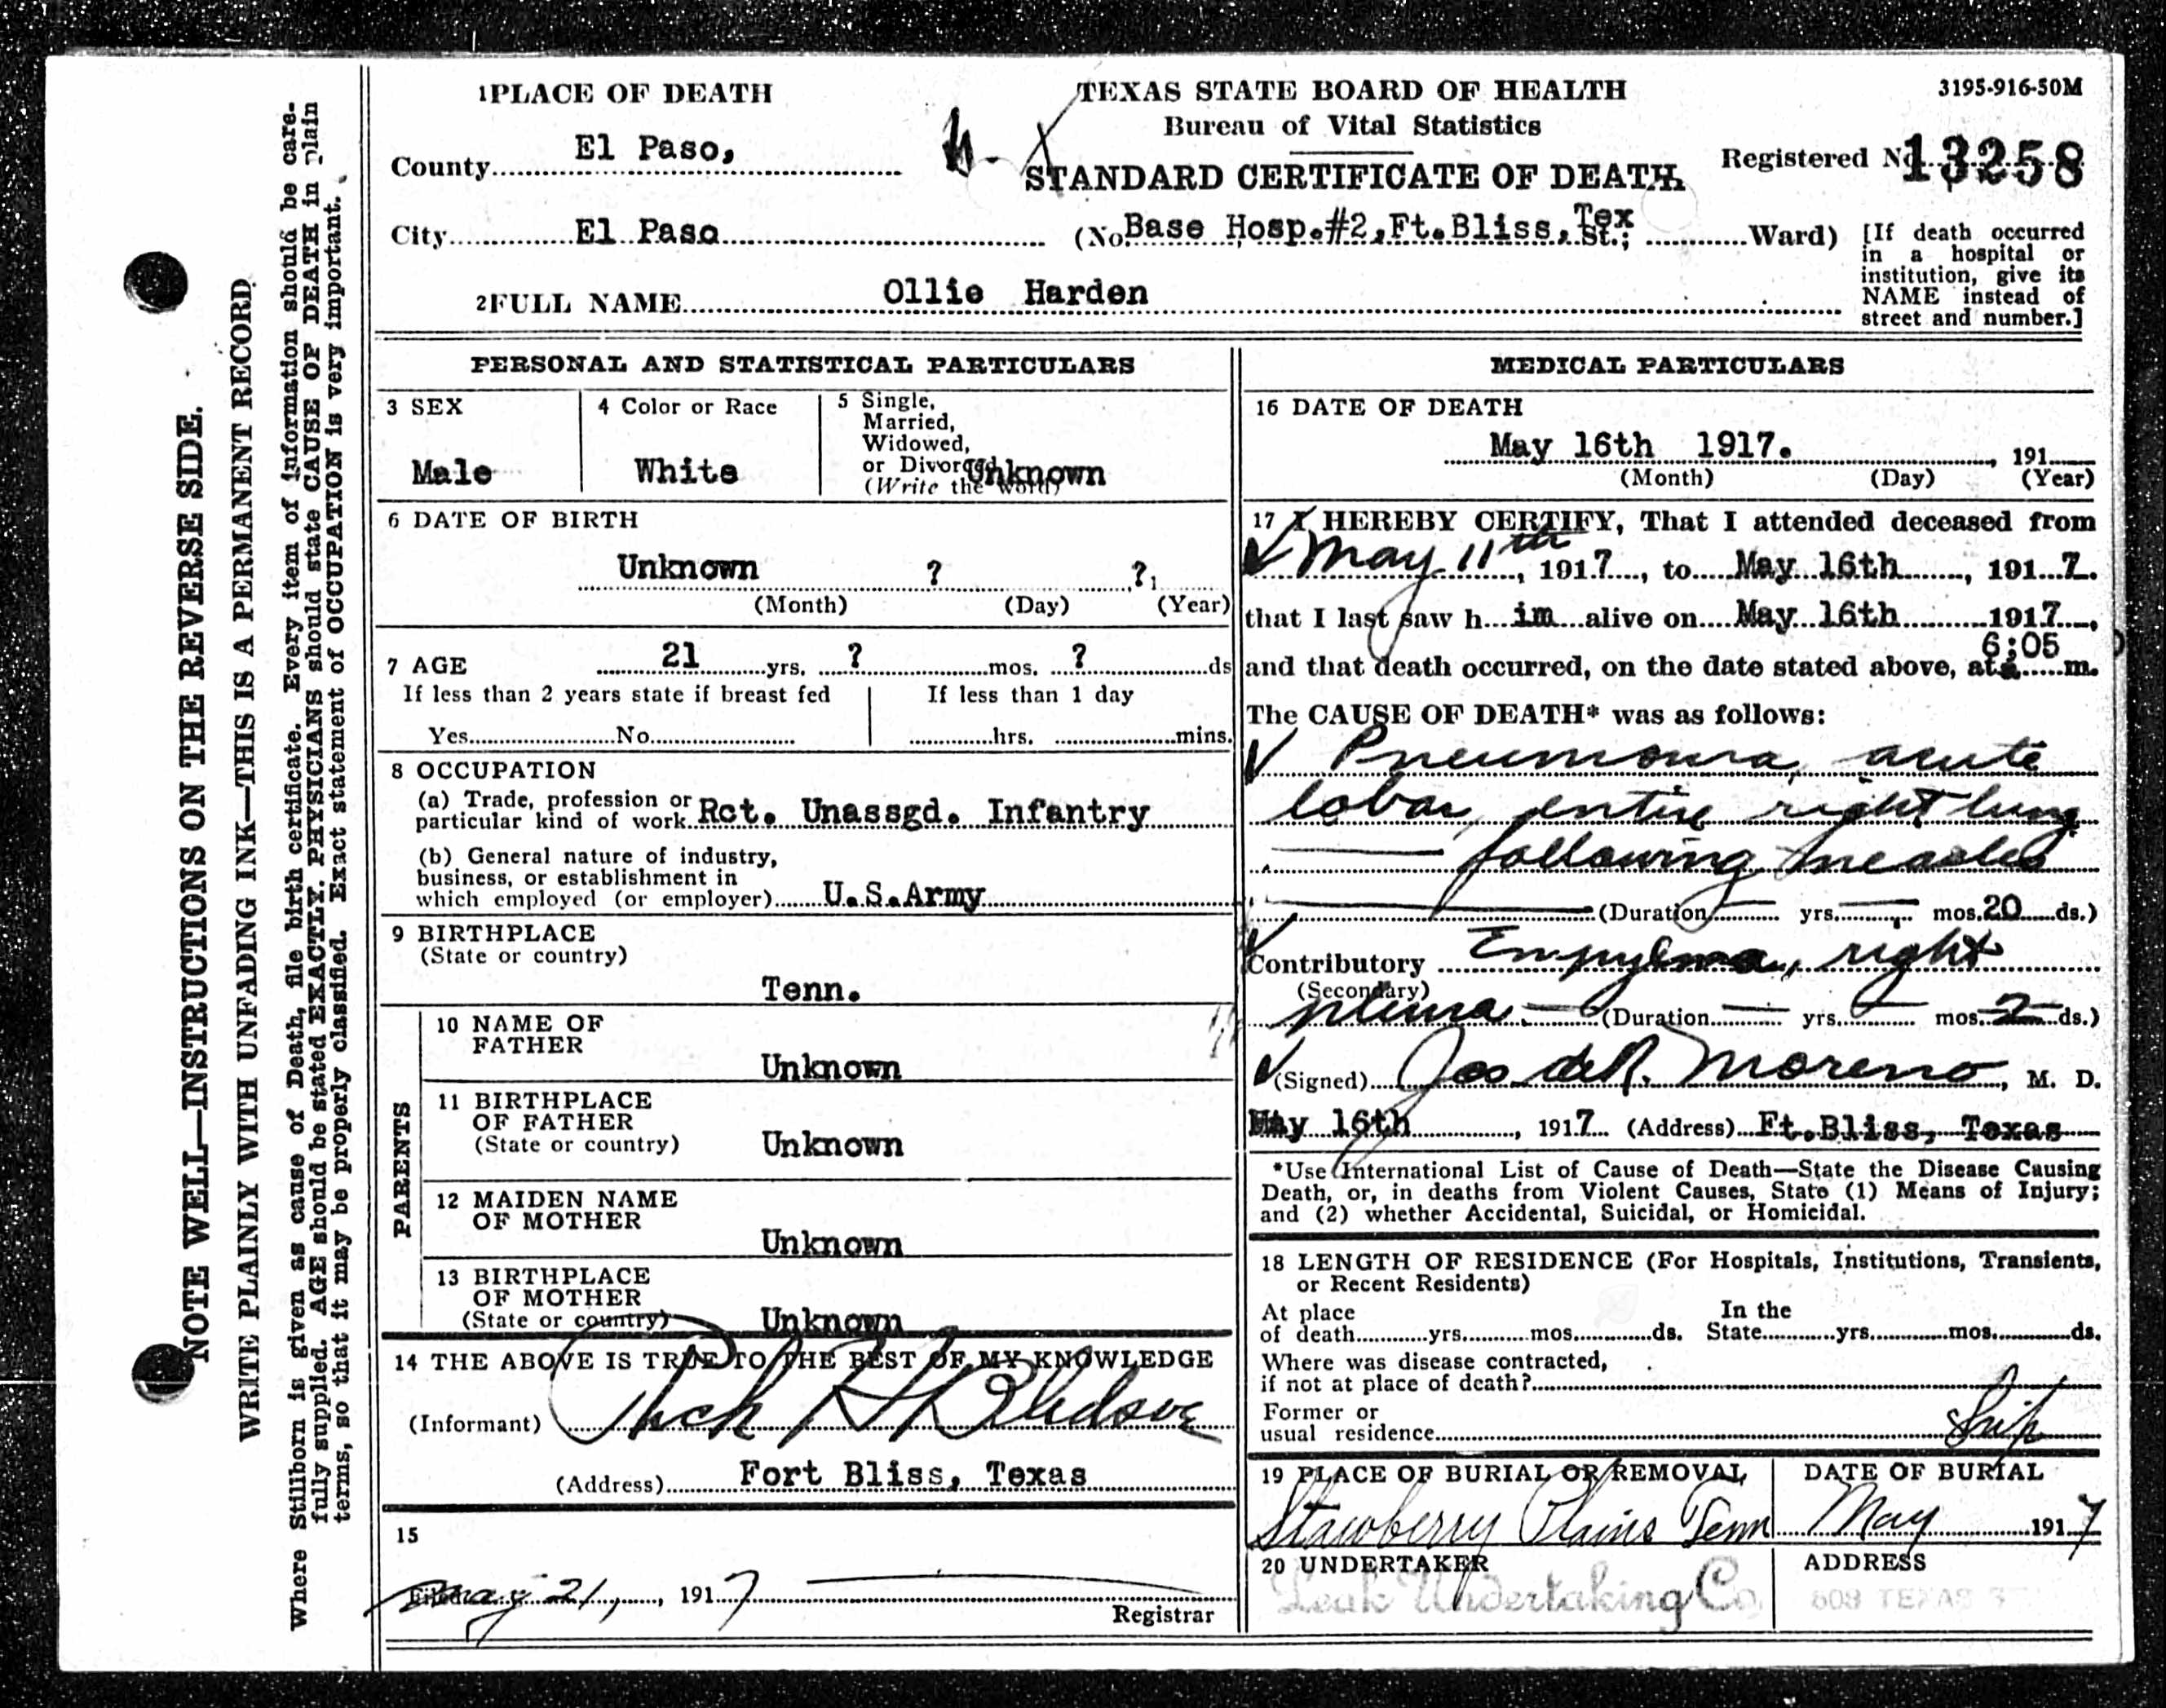 NOTE WELL—INSTRUCTIONS ON THE REVERSE SIDE.
WRITE PLAINLY WITH UNFADING INK—THIS IS A PERMANENT RECORD
Where Stillborn is given as cause of Death, file birth certificate. Every item of information should be care-
fully supplied. AGE should be stated EXACTLY. PHYSICIANS should state CAUSE OF DEATH in plain
terms, so that it may be properly classified. Exact statement of OCCUPATION is very important.
1 PLACE OF DEATH
County El Paso,
City El Paso
TEXAS STATE BOARD OF HEALTH
Bureau of Vital Statistics
STANDARD CERTIFICATE OF DEATH
3195-916-50M
Registered No. 13258
(No. Base Hosp.#2,Ft.Bliss,Tex St.; Ward)
[If death occurred
in a hospital or
institution, give its
NAME instead of
street and number.]
2 FULL NAME Ollie Harden
PERSONAL AND STATISTICAL PARTICULARS
3 SEX
Male
4 Color or Race
White
5 Single,
Married,
Widowed,
or Divorced
(Write the word)
Unknown
6 DATE OF BIRTH
Unknown ? ? 1
(Month) (Day) (Year)
7 AGE 21 yrs. ? mos. ? ds
If less than 2 years state if breast fed
Yes No
If less than 1 day
hrs. mins.
8 OCCUPATION
(a) Trade, profession or
particular kind of work Rct. Unassgd. Infantry
(b) General nature of industry,
business, or establishment in
which employed (or employer) U.S.Army
9 BIRTHPLACE
(State or country)
Tenn.
PARENTS
10 NAME OF
FATHER
Unknown
11 BIRTHPLACE
OF FATHER
(State or country) Unknown
12 MAIDEN NAME
OF MOTHER
Unknown
13 BIRTHPLACE
OF MOTHER
(State or country) Unknown
14 THE ABOVE IS TRUE TO THE BEST OF MY KNOWLEDGE
(Informant) Bledsoe
(Address) Fort Bliss, Texas
15
Filed May 21, 1917
Registrar
MEDICAL PARTICULARS
16 DATE OF DEATH
May 16th 1917. , 191
(Month) (Day) (Year)
17 I HEREBY CERTIFY, That I attended deceased from
May 11th, 1917, to May 16th, 1917.
that I last saw h im alive on May 16th 1917,
6;05
and that death occurred, on the date stated above, at a m.
The CAUSE OF DEATH* was as follows:
Pneumonia, acute
lobar, entire right lung
following measles
(Duration — yrs. — mos. 20 ds.)
Contributory Empyema, right
(Secondary)
pleura — (Duration — yrs. — mos. 2 ds.)
(Signed) Jos deR. Moreno, M. D.
May 16th, 1917 (Address) Ft.Bliss, Texas
*Use International List of Cause of Death—State the Disease Causing
Death, or, in deaths from Violent Causes, State (1) Means of Injury;
and (2) whether Accidental, Suicidal, or Homicidal.
18 LENGTH OF RESIDENCE (For Hospitals, Institutions, Transients,
or Recent Residents)
At place
of death yrs. mos. ds.
In the
State yrs. mos. ds.
Where was disease contracted,
if not at place of death?
Former or
usual residence
Ship
19 PLACE OF BURIAL OR REMOVAL
Stawberry Plains Tenn
DATE OF BURIAL
May 1917
20 UNDERTAKER
Leak Undertaking Co.
ADDRESS
609 TEXAS